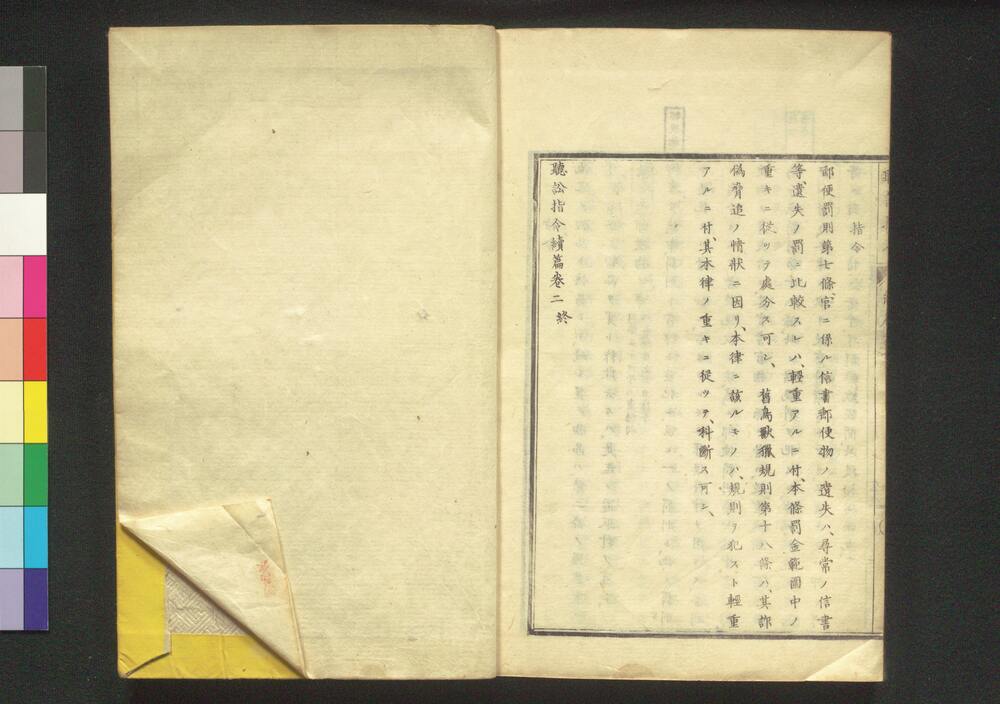 指令
郵便罰則第七條、官ニ係ル信書郵便物ノ遺失ハ、尋常ノ信書
等遺失ノ罰ニ比較スレハ、輕重アルニ付、本條罰金範圍中ノ
重キニ從ツテ處分ス可シ、舊鳥獸獵規則第十八條ハ、其詐
偽脅迫ノ情狀ニ因リ、本律ニ該ルモノハ、規則ヲ犯スト輕重
アルニ付、其本律ノ重キニ從ツテ、科斷ス可シ、
聽訟指令續篇卷二終